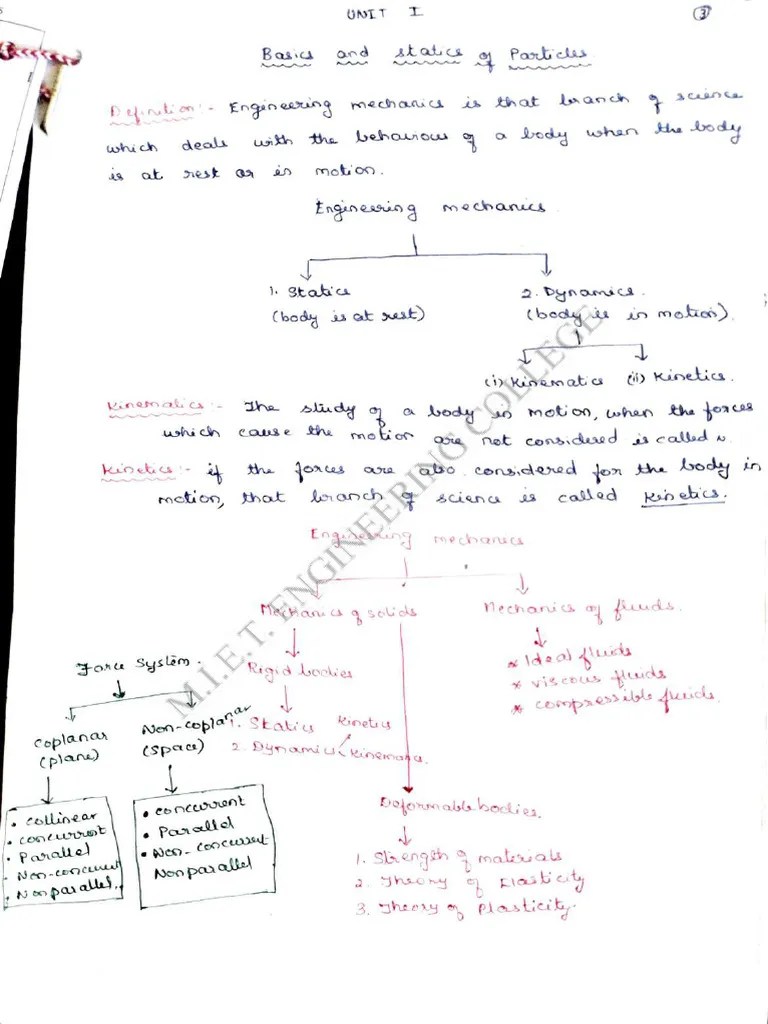 UNIT I
3
Basics and statics of Particles.
Definition :- Engineering mechanics is that branch of science
which deals with the behaviour of a body when the body
is at rest or in motion.
Engineering mechanics
1. Statics
2. Dynamics.
(body is at rest)
(body is in motion).
(i) Kinematics (ii) Kinetics.
Kinematics :- The study of a body in motion, when the forces
which cause the motion are not considered is called
Kinetics :- if the forces are also considered for the body in
motion, that branch of science is called Kinetics.
Engineering mechanics
Mechanics of solids
Mechanics of fluids.
Rigid bodies
1. Statics
2. Dynamics
Kinetics
Kinematics.
* Ideal fluids
* viscous fluids
* compressible fluids.
Force System.
Coplanar
(plane)
Non-coplanar
(space)
• collinear
• concurrent
• Parallel
• Non-concurrent
• Nonparallel.
• concurrent
• Parallel
• Non-concurrent
Nonparallel
Deformable bodies.
1. Strength of materials
2. Theory of Elasticity
3. Theory of Plasticity.
M.I.E.T. ENGINEERING COLLEGE